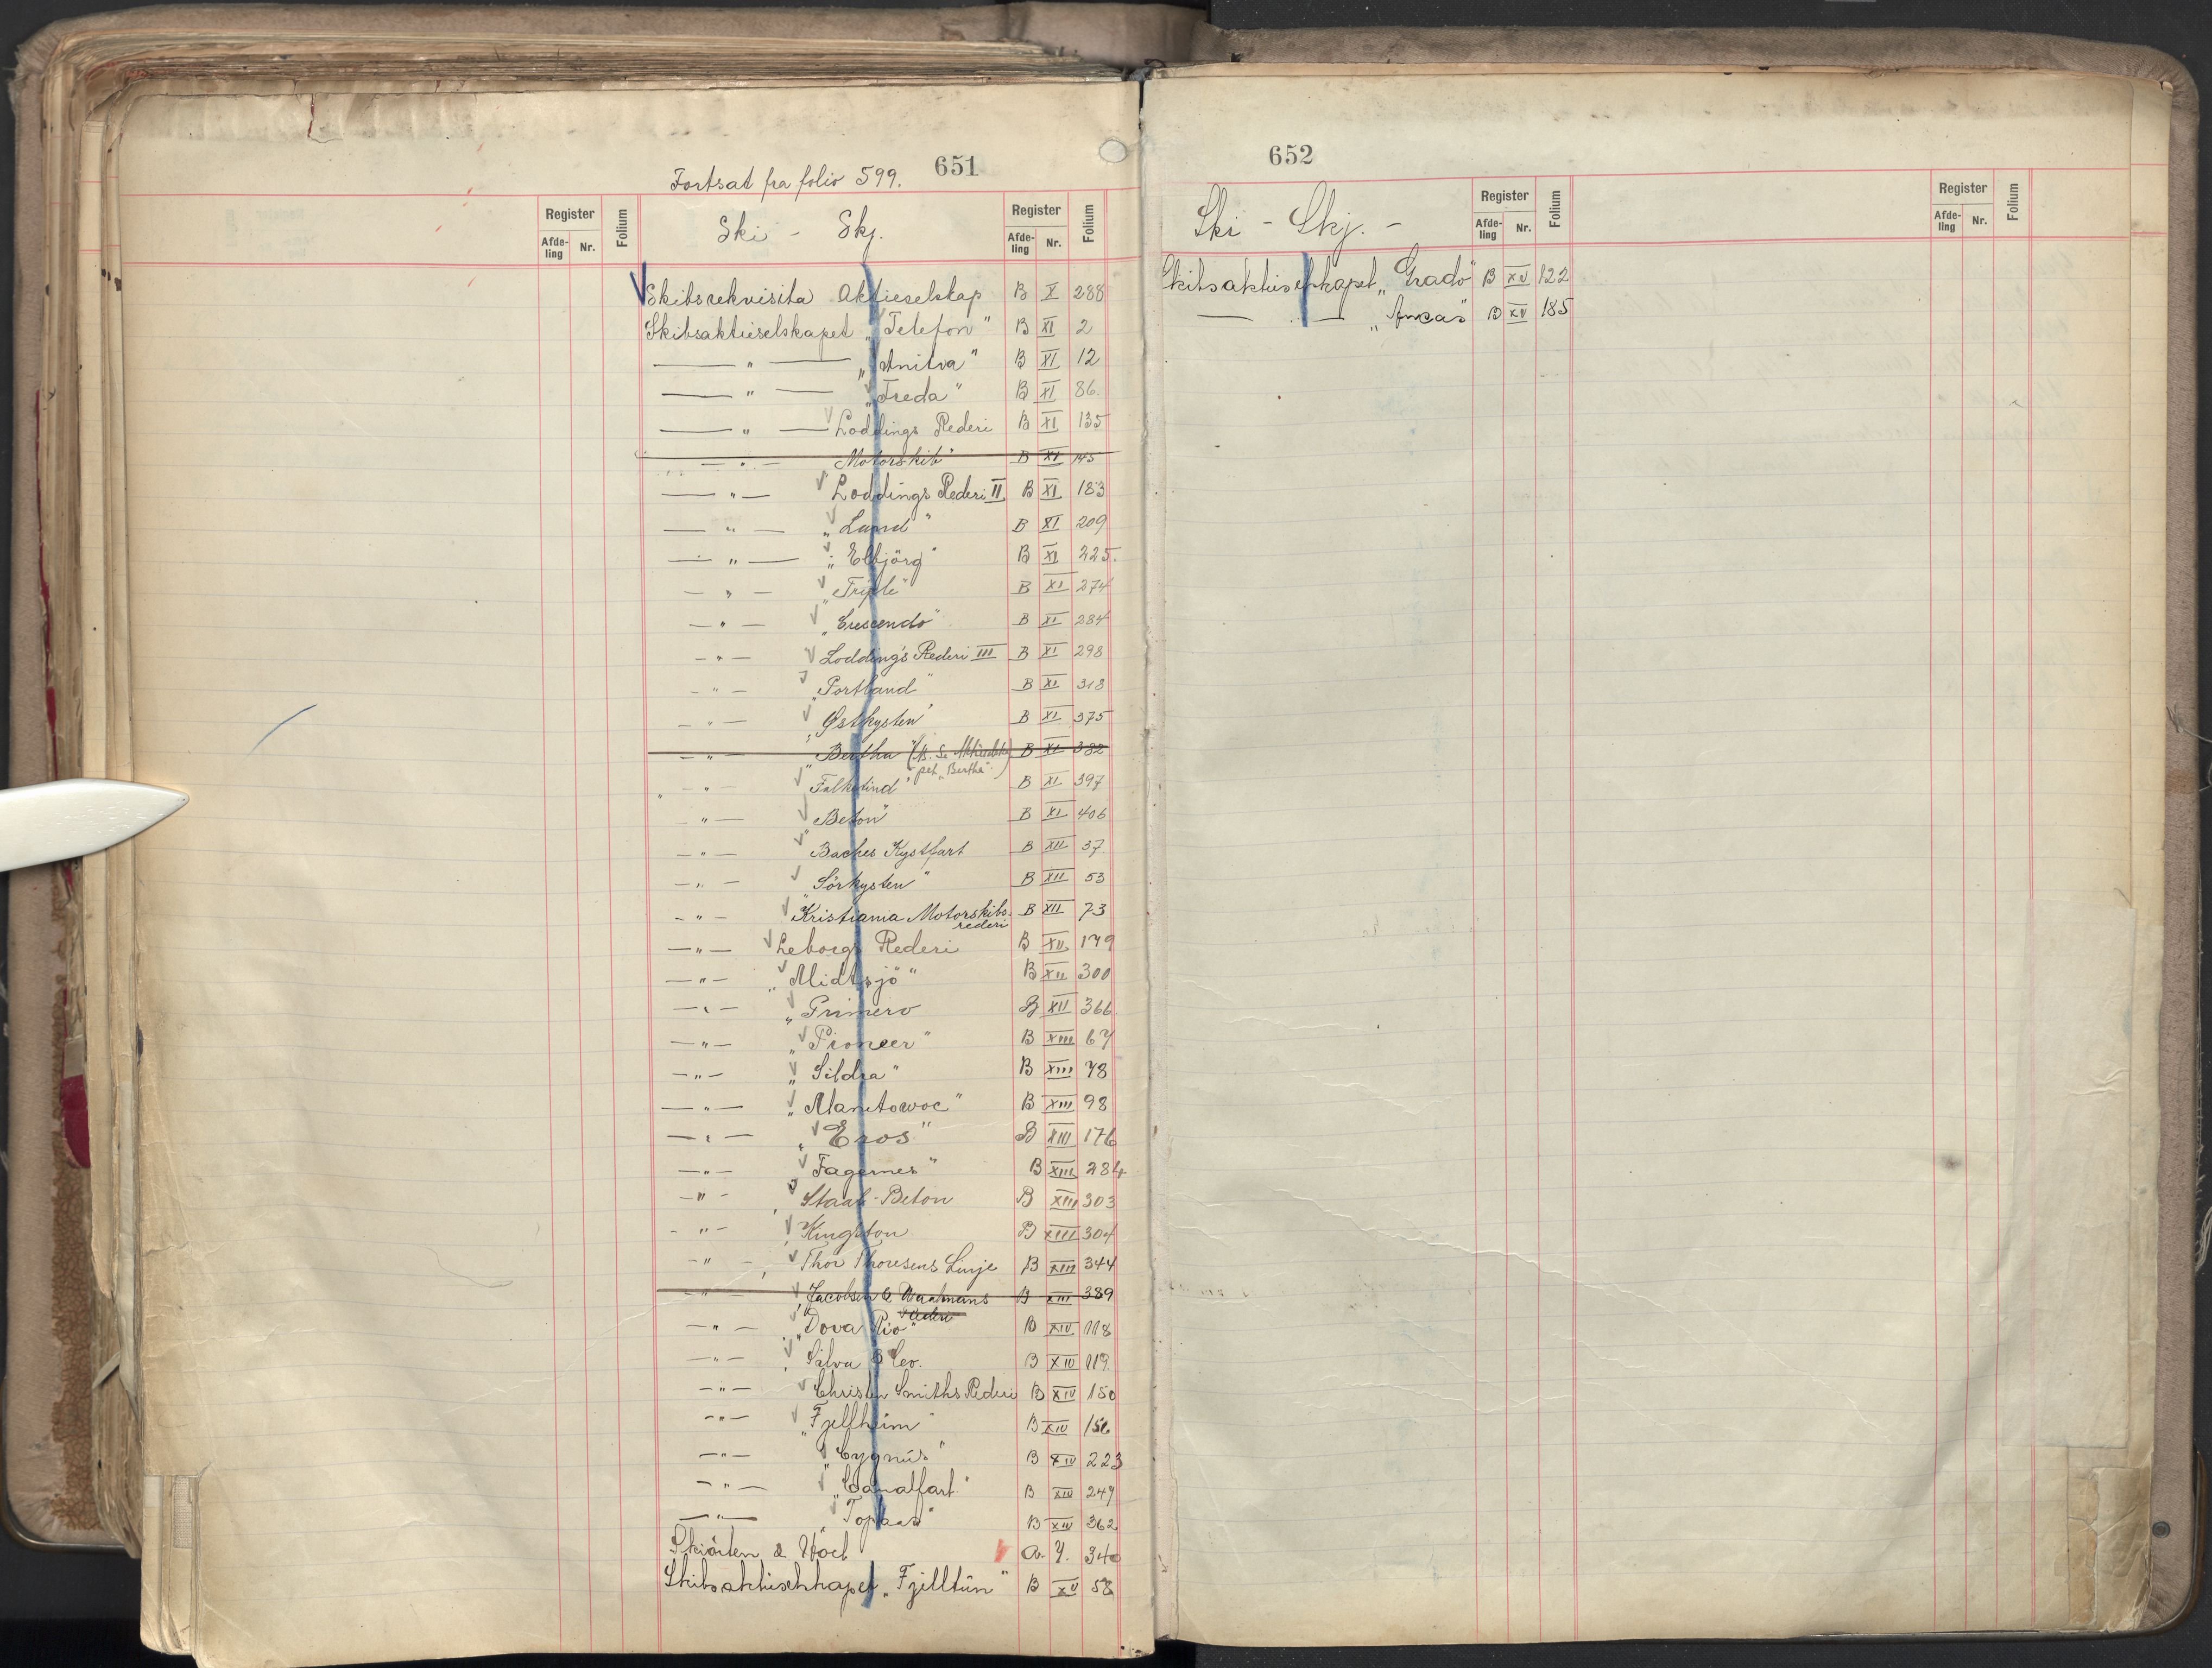 651
Fortsat fra folio 599.
Register Folium
Afde-ling Nr.
Ski - Skj. Register Folium
Afde-ling Nr.
Skibsrekvisita Aktieselskap B X 288
Skibsaktieselskapet „Telefon" B XI 2
— " — „Anitra" B XI 12
— " — „Freda" B XI 86.
— " — Loddings Rederi B XI 135
— " — Motorskib" B XI 145
— " — Loddings Rederi II B XI 183
— " — „Lund" B XI 209
— " — „Elbjörg" B XI 225.
— " — „Triple" B XI 274
— " — „Crescendo" B XI 284
— " — Lodding's Rederi III B XI 298
— " — „Portland" B XI 318
— " — „Østkysten" B XI 375
— " — „Bertha" (B. Se Aktieselska B XI 382
pet „Bertha".)
— " — „Falketind" B XI 397
— " — „Beton" B XI 406
— " — Baches Kystfart B XII 37
— " — „Sörkysten" B XII 53
— " — Kristiania Motorskibs- B XII 73
rederi
— " — Leborgs Rederi B XII 179
— " — „Midtsjö" B XII 300
— " — „Primero B XII 366
— " — „Pioneer" B XIII 67
— " — „Sildra" B XIII 78
— " — „Manitowoc" B XIII 98
— " — „Eros" B XIII 176
— " — „Fagernes" B XIII 284
— " — Staal-Beton B XIII 303
— " — Kingston B XIII 304
— " — Thor Thoresens Linje B XIII 344
— " — Jacobsen & Waatmans B XIII 389
Rederi
— " — „Dova Rio" B XIV 118
— " — Silva & Co. B XIV 119.
— " — Christen Smiths Rederi B XIV 150
— " — „Fjellheim" B XIV 156
— " — „Cygnus" B XIV 223
— " — „Canalfart" B XIV 247
— " — „Topaas" B XIV 362
Skiörten & Höet Av. Y. 340
Skibsaktieselskapet „Fjelltun" B XV 58
652
Ski - Skj. - Register Folium
Afde-ling Nr.
Register Folium
Afde-ling Nr.
Skibsaktieselskapet „Grado" B XV 122
— " — „Ancas" B XV 185